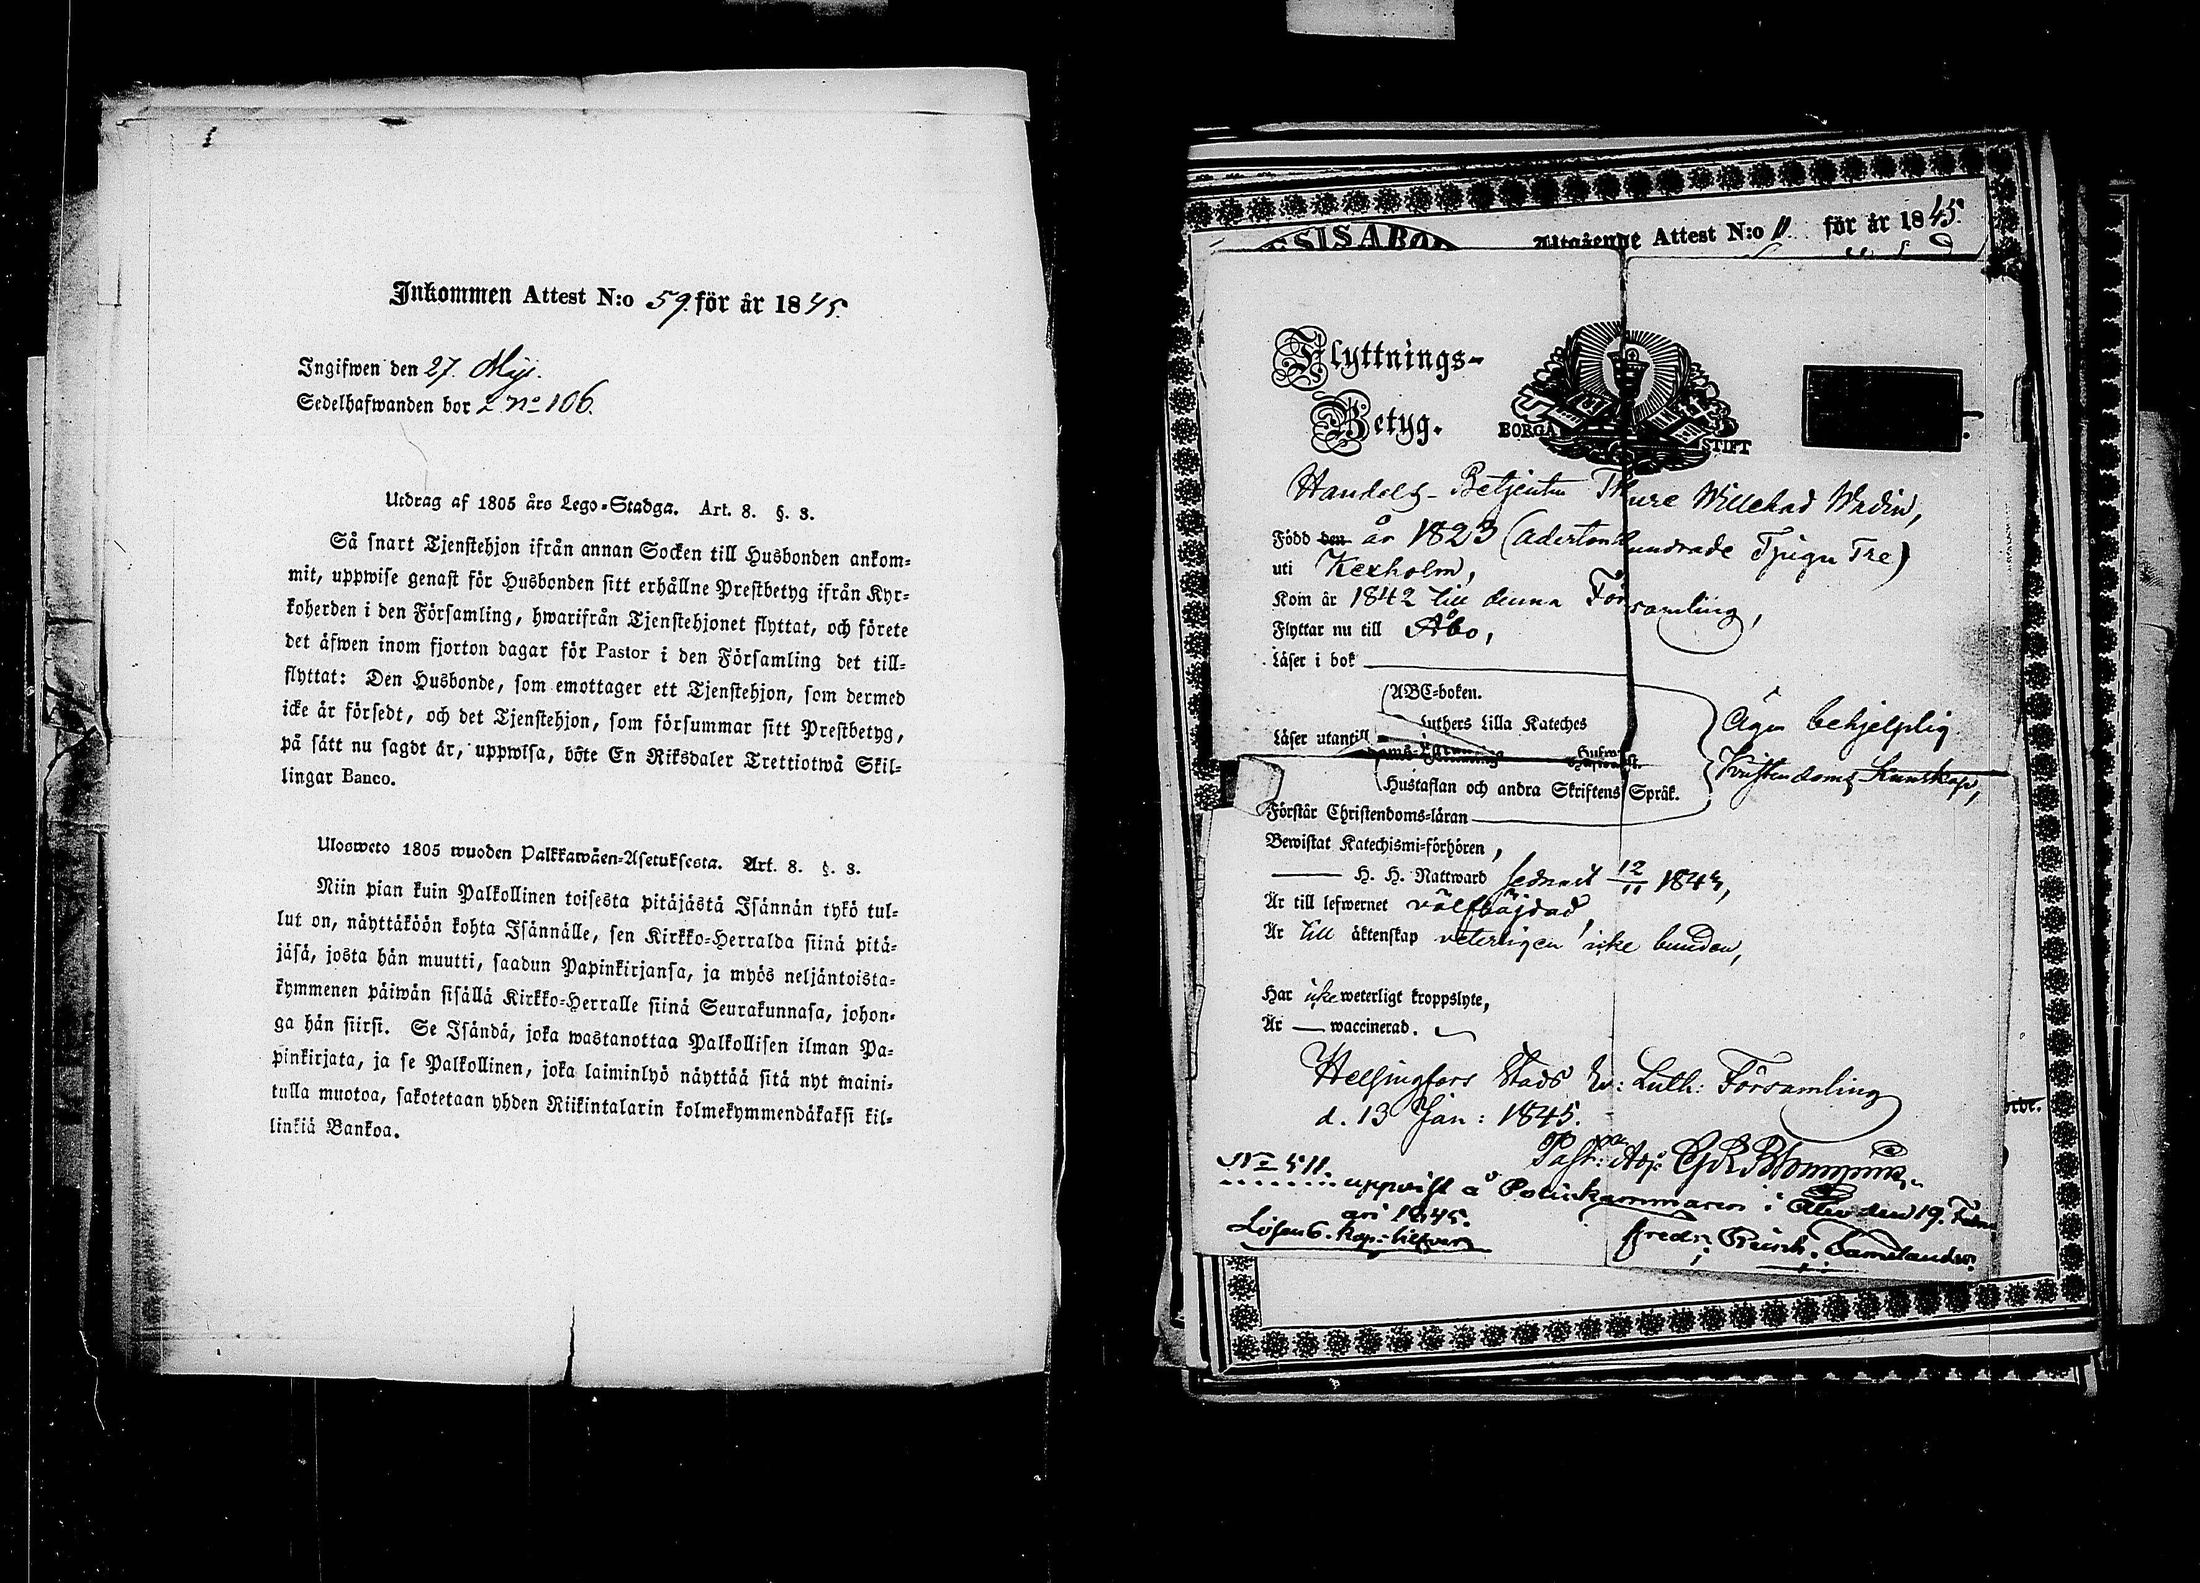 Inkommen Attest N:o 59. för år 1845.
Ingifwen den 27. Maji.
Sedelhafwanden bor 2. No 106.
Utdrag af 1805 års Lego-Stadga. Art. 8. §. 3.
Så snart Tjenstehjon ifrån annan Socken till Husbonden ankom-
mit, uppwise genast för Husbonden sitt erhållne Prestbetyg ifrån Kyr-
koherden i den Församling, hwarifrån Tjenstehjonet flyttat, och förete
det äfwen inom fjorton dagar för Pastor i den Församling det till-
flyttat: Den Husbonde, som emottager ett Tjenstehjon, som dermed
icke är försedt, och det Tjenstehjon, som försummar sitt Prestbetyg,
på sätt nu sagdt är, uppwisa, böte En Riksdaler Trettiotwå Skil-
lingar Banco.
Ulosweto 1805 wuoden Palkkawäen-Asetuksesta. Art. 8. §. 3.
Niin pian kuin Palkollinen toisesta pitäjästä Isännän tykö tul-
lut on, näyttäköön kohta Isännälle, sen Kirkko-Herralda siinä pitä-
jäsä, josta hän muutti, saadun Papinkirjansa, ja myös neljäntoista-
kymmenen päiwän sisällä Kirkko-Herralle siinä Seurakunnasa, johon-
ga hän siirsi. Se Isändä, joka wastanottaa Palkollisen ilman Pa-
pinkirjata, ja se Palkollinen, joka laiminlyö näyttää sitä nyt maini-
tulla muotoa, sakotetaan yhden Riikintalarin kolmekymmendäkaksi kil-
linkiä Bankoa.
Utgående Attest N:o 11. för år 1845.
Flyttnings-
Betyg.
BORGÅ STIFT
Handels-Betjenten Thure Willehad Wadin,
Född den år 1823 (Adertonhundrade Tjugu Tre)
uti Kexholm,
Kom år 1842 till denna Församling,
Flyttar nu till Åbo,
Läser i bok
ABC-boken.
Luthers Lilla Kateches
Läser utantill
Hustaflan och andra Skriftens Språk.
Äger behjelplig
Kristendoms Kunskap,
Förstår Christendoms-läran
Bewistat Katechismi-förhören,
H. H. Nattward sednast 12/11 184
Är till lefwernet välfräjdad,
Är till äktenskap veterligen icke bunden,
Har icke weterligt kroppslyte,
Är waccinerad.
Helsingfors Stads Ev: Luth: Församling
d. 13 Jan: 1845.
No 511.
uppvist å Poliskammaren i Åbo den 19.
ari 1845.
Lösen 6. kop: silfver